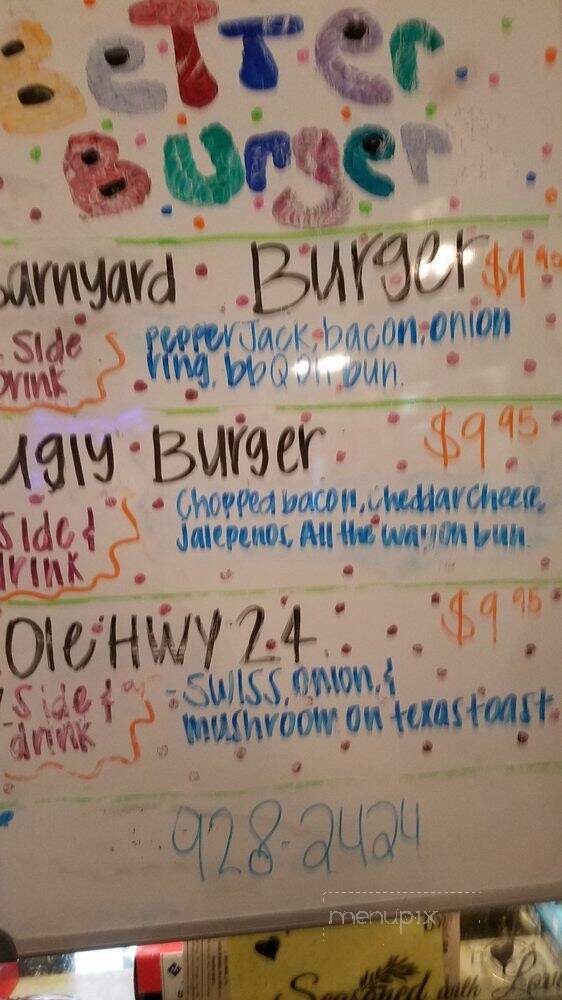 Better
Burger
Barnyard Burger $9
Side
Drink
Pepper Jack, bacon, onion
ring, bbQ on bun.
Ugly Burger $9.95
Side &
drink
Chopped bacon, cheddar cheese,
Jalepenos, All the way on bun.
Ole HWY 24 $9.95
Side &
drink
- Swiss, onion, &
mushroom on texas toast.
928-2424
menupix
Seasoned with Love